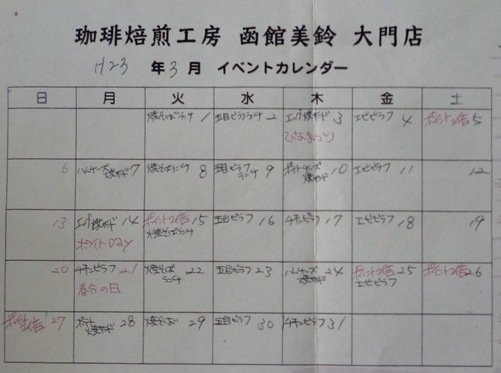 珈琲焙煎工房 函館美鈴 大門店
H23 年3月 イベントカレンダー
日 月 火 水 木 金 土
焼そばランチ 1
五目ピラフランチ 2
エッグ焼カレー 3
ひなまつり
エビピラフ 4
ポイント2倍 5
6
ハムチーズ
焼カレー 7
焼そばランチ 8
五目ピラフ
ランチ 9
10
エビピラフ 11
12
13
エッグ焼カレー 14
ポイントDay
ポイント2倍 15
焼そばランチ
五目ピラフ 16
チキンピラフ 17
エビピラフ 18
19
20
チキンピラフ 21
春分の日
焼そば
ランチ 22
五目ピラフ 23
ハムチーズ
焼カレー 24
ポイント2倍 25
エビピラフ
ポイント2倍 26
ポイント
2倍 27
28
焼そば 29
五目ピラフ 30
チキンピラフ 31